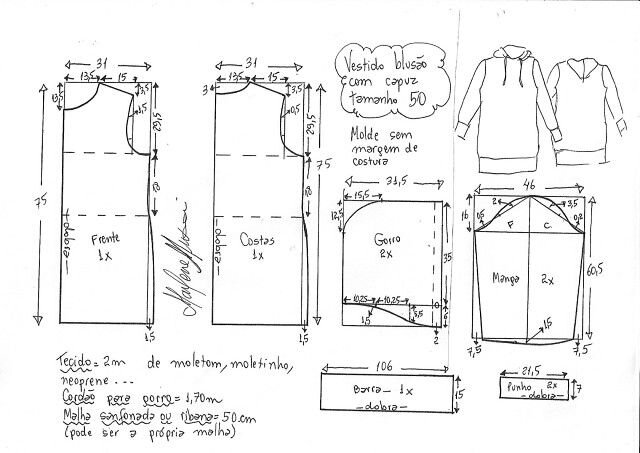 Vestido blusão
com capuz
tamanho 50
Molde sem
margem de
costura
31
13,5 15
13,5
3,5
1,5
29,5
75
dobra
Frente
1x
1,5
31
13,5 15
3
3,5
0,5
29,5
75
dobra
Costas
1x
1,5
Marlene Mukai
31,5
15,5
12,5
Gorro
2x
35
10,25 10,25
1,5
5,5
6
2
46
16
0,5
2
3,5
0,2
F C
Manga 2x
60,5
1,5
7,5 7,5
Tecido = 2m de moletom, moletinho,
neoprene ...
Cordão para gorro = 1,70m
Malha sanfonada ou ribana = 50 cm
(pode ser a própria malha)
106
Barra - 1x
- dobra -
15
21,5
Punho 2x
- dobra -
7